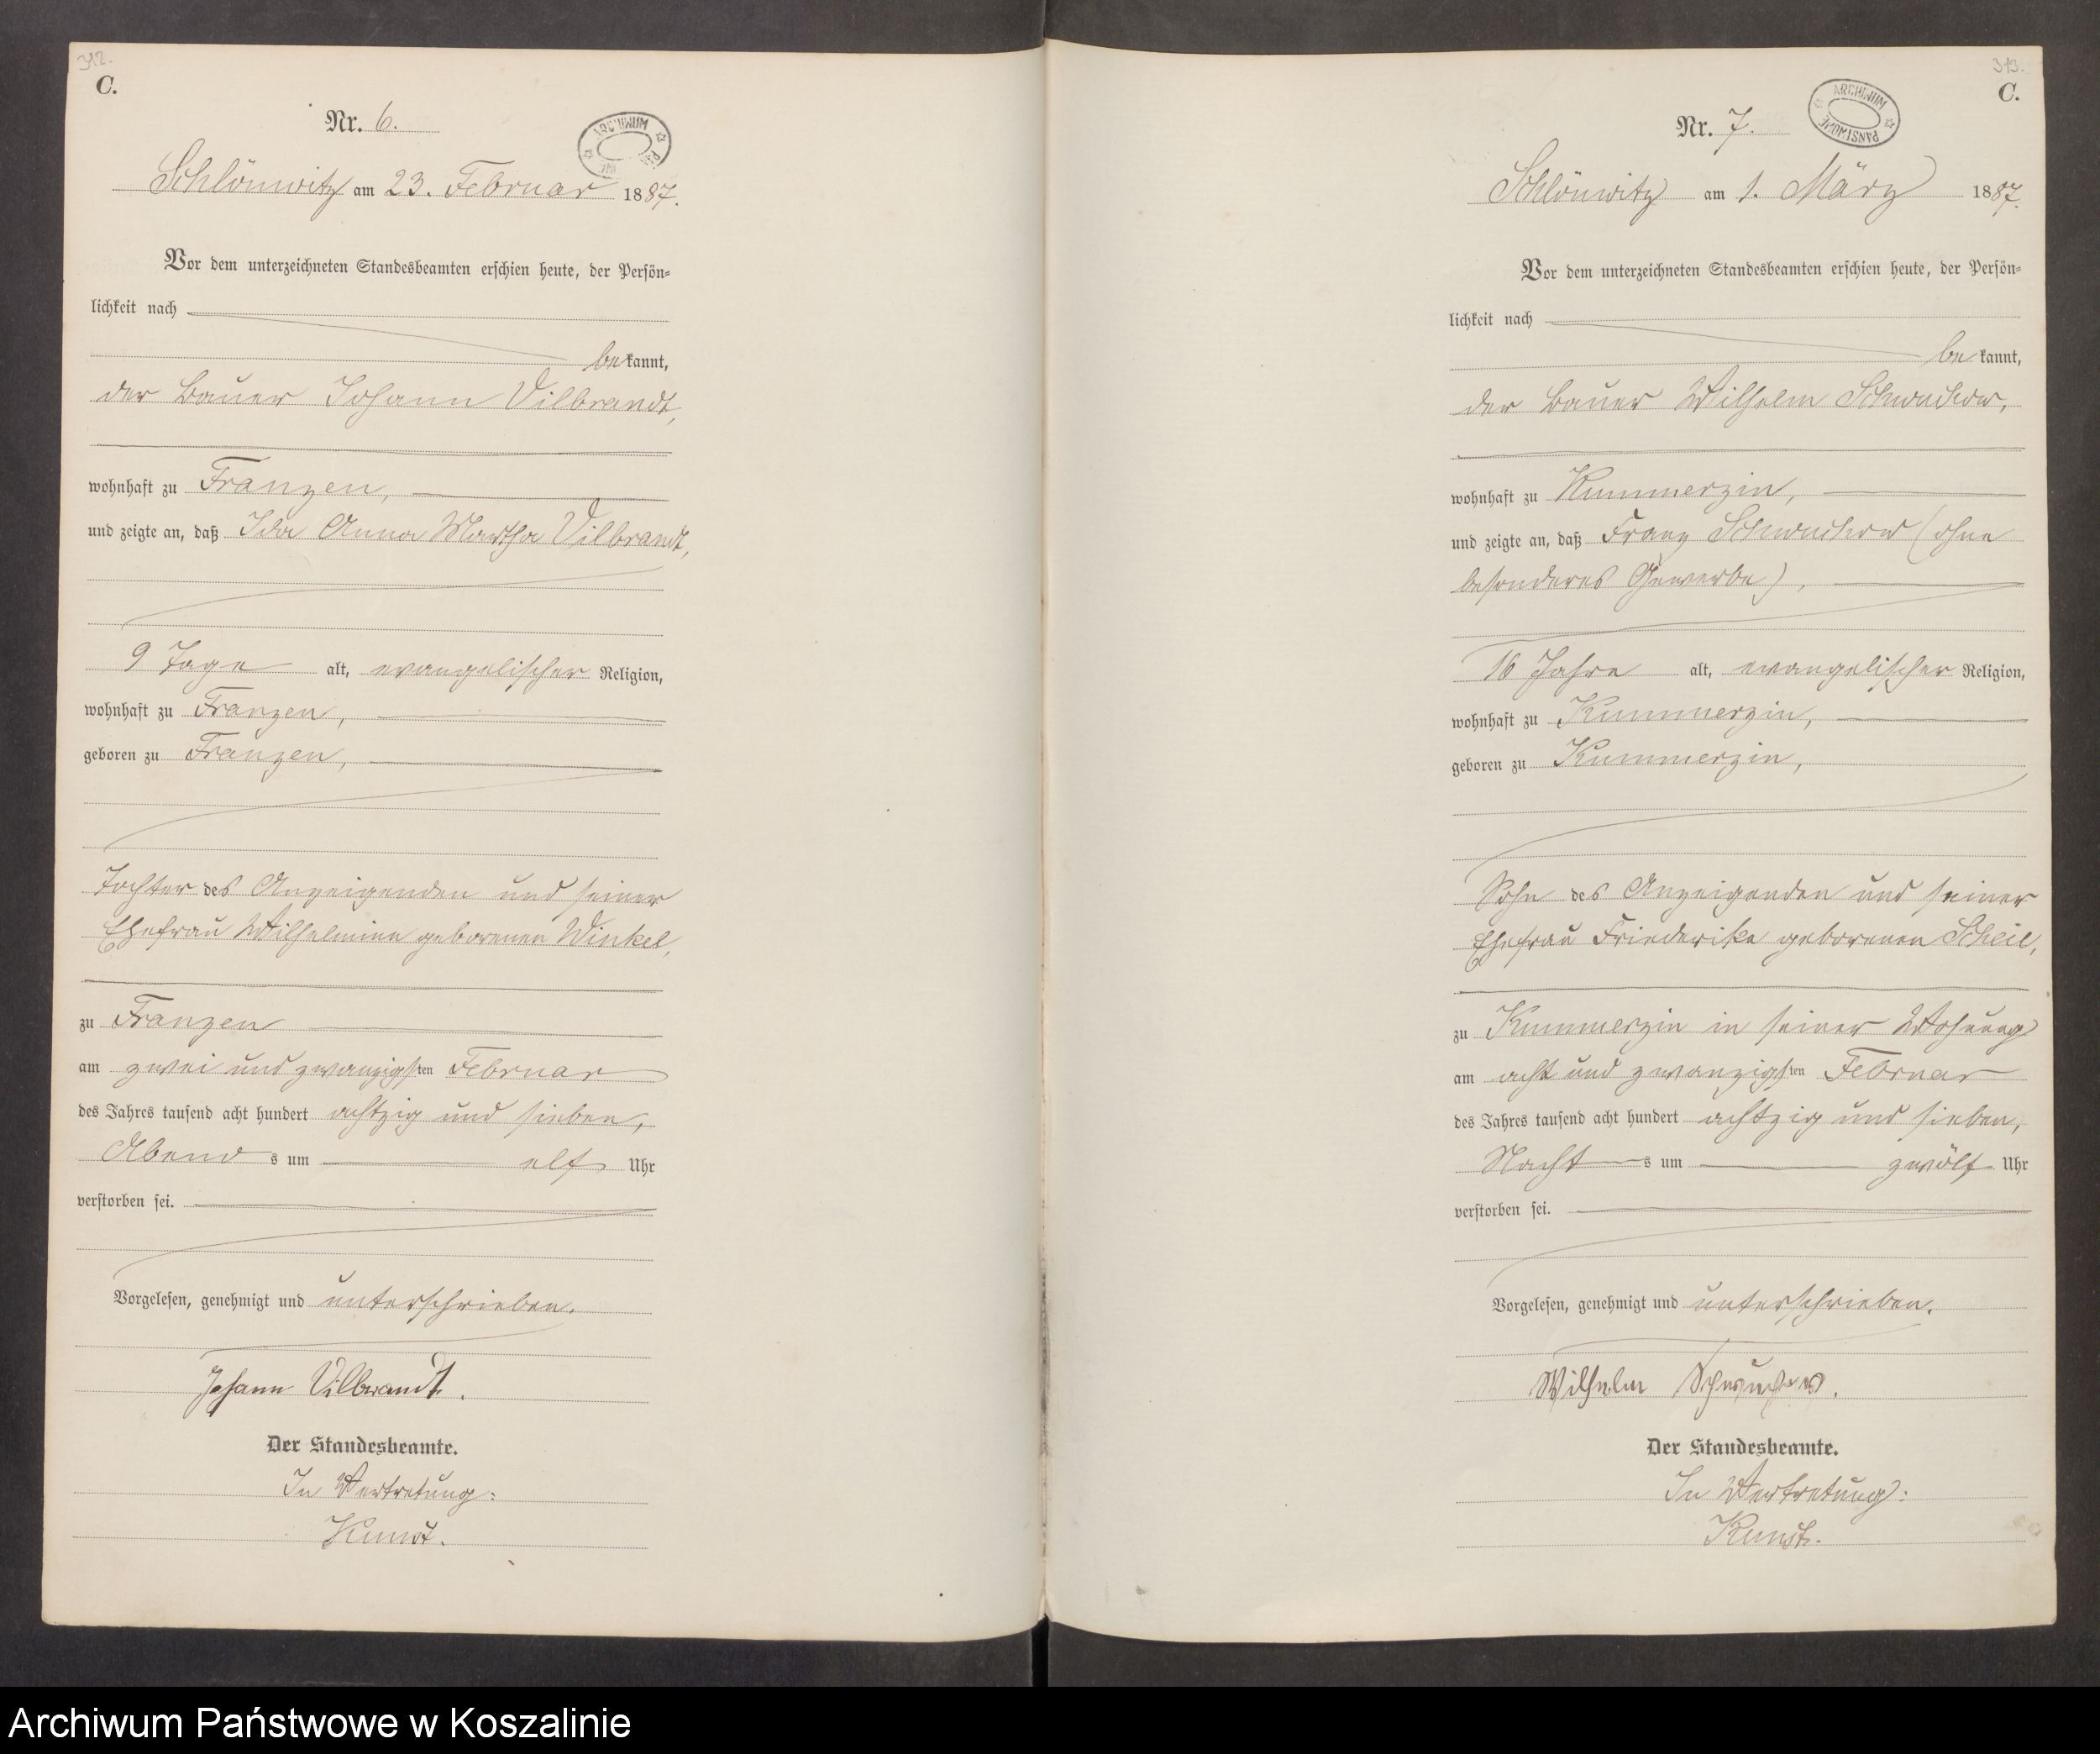 312.
C.
Nr. 6.
ARCHIWUM
Schlönwitz am 23. Februar 1887.
Vor dem unterzeichneten Standesbeamten erschien heute, der Persön-
lichkeit nach
bekannt,
der Bauer Johann Vilbrandt,
wohnhaft zu Franzen,
und zeigte an, daß Ida Anna Martha Vilbrandt,
9 Tage alt, evangelischer Religion,
wohnhaft zu Franzen,
geboren zu Franzen,
Tochter des Anzeigenden und seiner
Ehefrau Wilhelmine geborenen Winkel,
zu Franzen
am zwei und zwanzigsten Februar
des Jahres tausend acht hundert achtzig und sieben,
Abends um elf Uhr
verstorben sei.
Vorgelesen, genehmigt und unterschrieben.
Johann Vilbrandt.
Der Standesbeamte.
In Vertretung:
Kunst.
313.
C.
ARCHIWUM PAŃSTWOWE
Nr. 7.
Schlönwitz am 1. März 1887.
Vor dem unterzeichneten Standesbeamten erschien heute, der Persön-
lichkeit nach
bekannt,
der Bauer Wilhelm Schwuchow,
wohnhaft zu Kummerzin,
und zeigte an, daß Franz Schwuchow (ohne
besonderes Gewerbe),
16 Jahre alt, evangelischer Religion,
wohnhaft zu Kummerzin,
geboren zu Kummerzin,
Sohn des Anzeigenden und seiner
Ehefrau Friederike geborenen Scheil,
zu Kummerzin in seiner Wohnung
am acht und zwanzigsten Februar
des Jahres tausend acht hundert achtzig und sieben,
Nachts um zwölf Uhr
verstorben sei.
Vorgelesen, genehmigt und unterschrieben.
Wilhelm Schwuchow.
Der Standesbeamte.
In Vertretung:
Kunst.
Archiwum Państwowe w Koszalinie